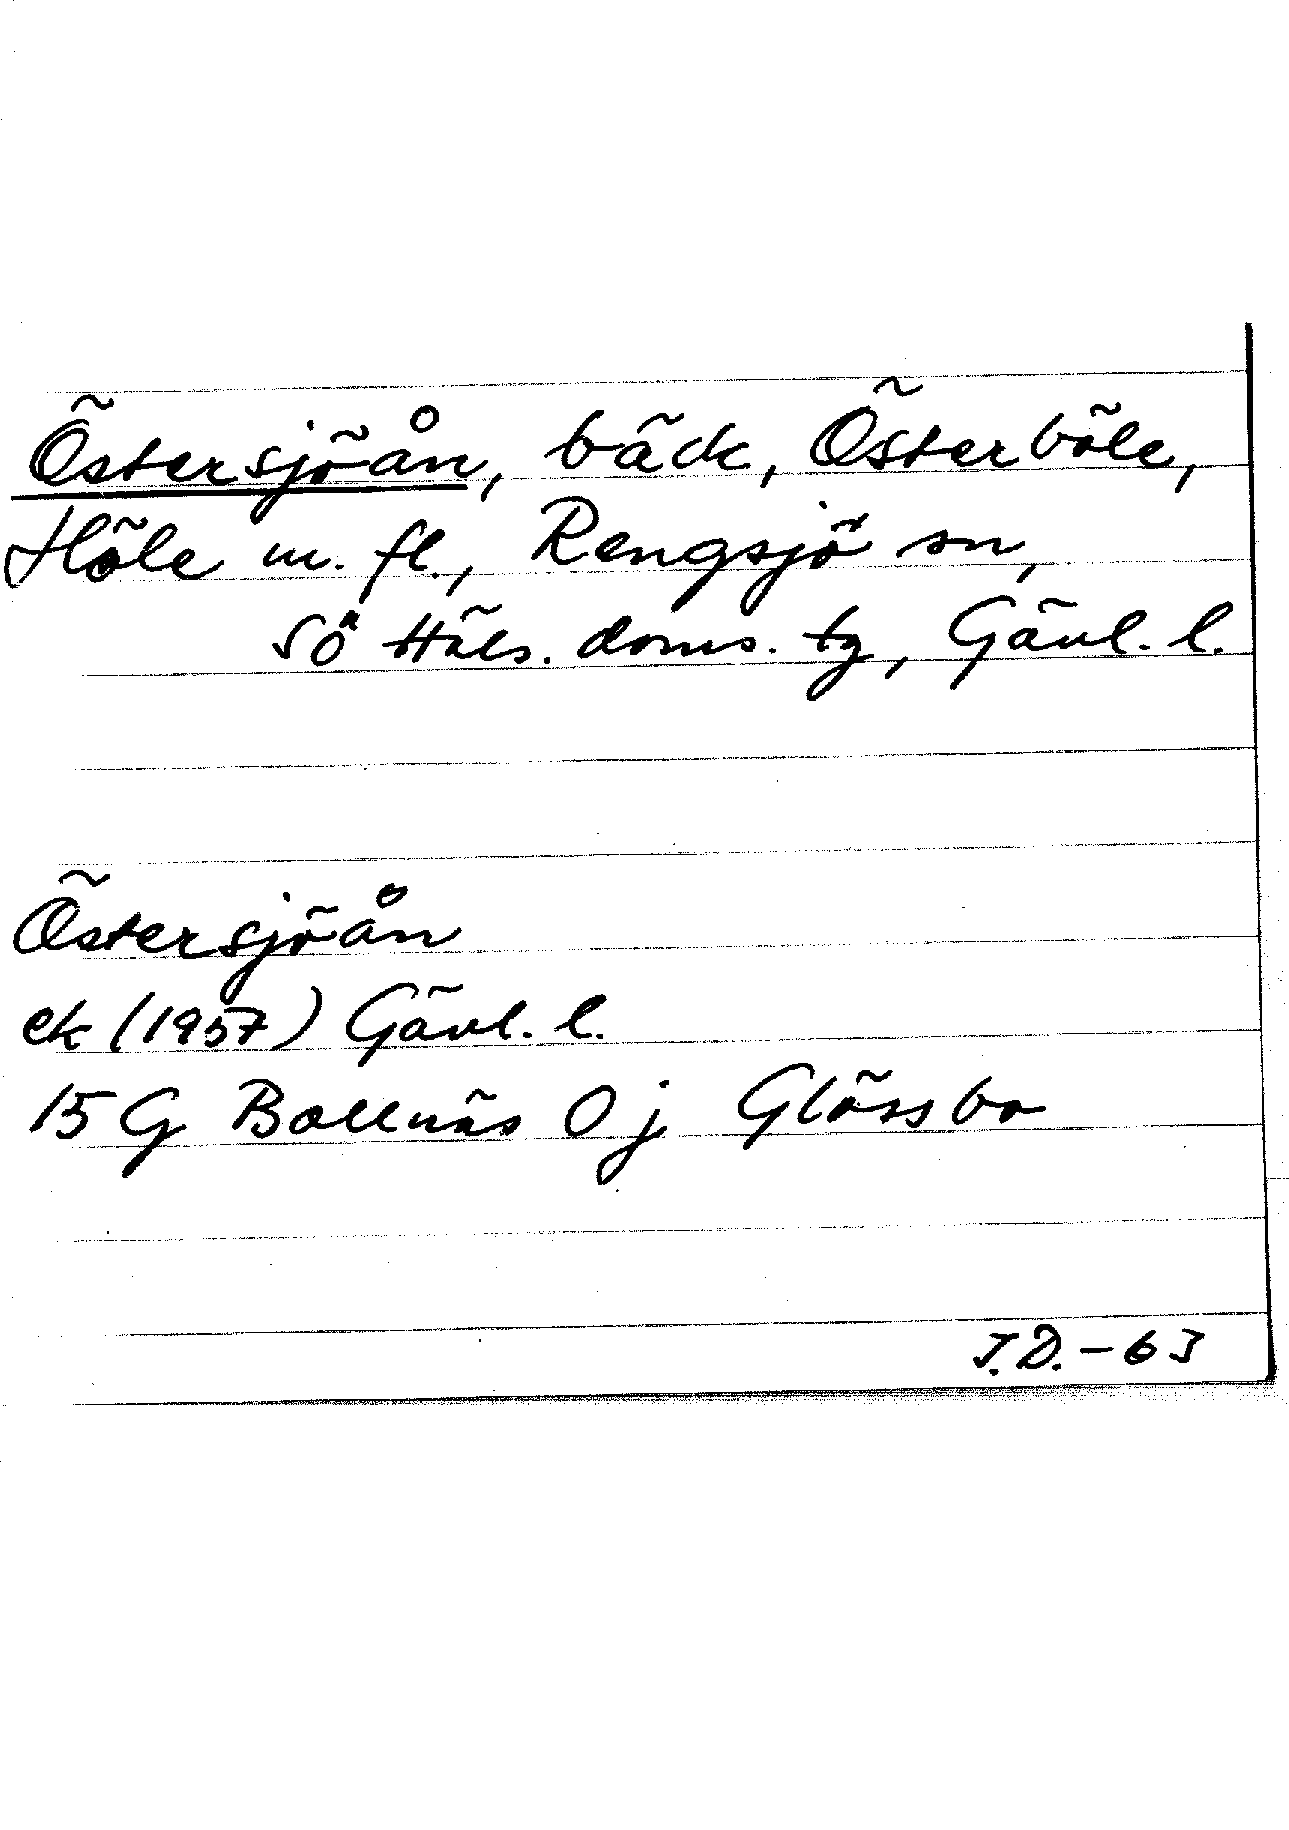 Östersjöån, bäck, Österböle,
Höle m. fl., Rengsjö sn,
SÖ Häls. doms. tg, Gävl. l.
Östersjöån
ek (1957) Gävl. l.
15 G Bollnäs 0 j Glössbo
J.D. - 63